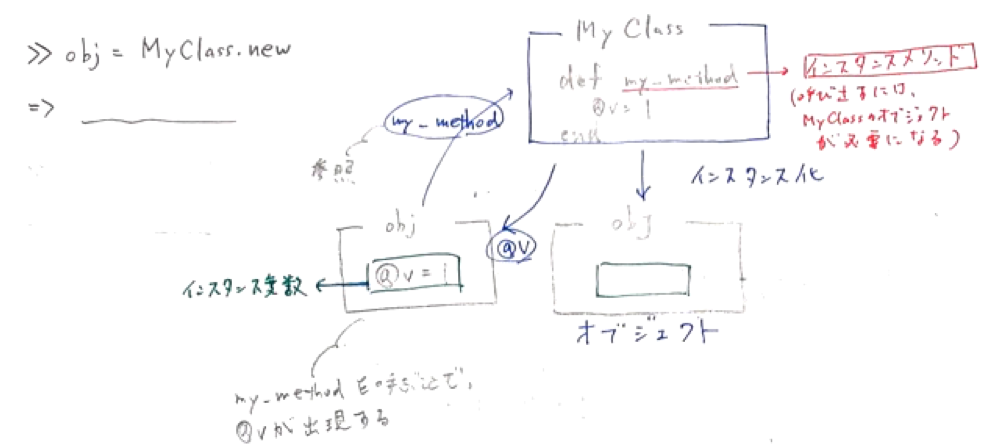 ≫ obj = MyClass.new
=>
My Class
def my_method
@v = 1
end
インスタンスメソッド
(呼び出すには、
MyClassのオブジェクト
が必要になる)
my_method
参照
インスタンス化
obj
@v = 1
インスタンス変数
@v
obj
オブジェクト
my_methodを呼ぶことで、
@vが出現する